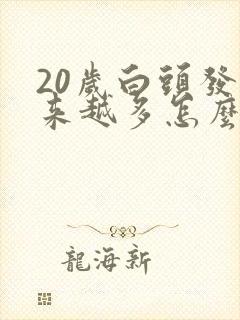 20歲白頭發
來越多怎麼
龍海新